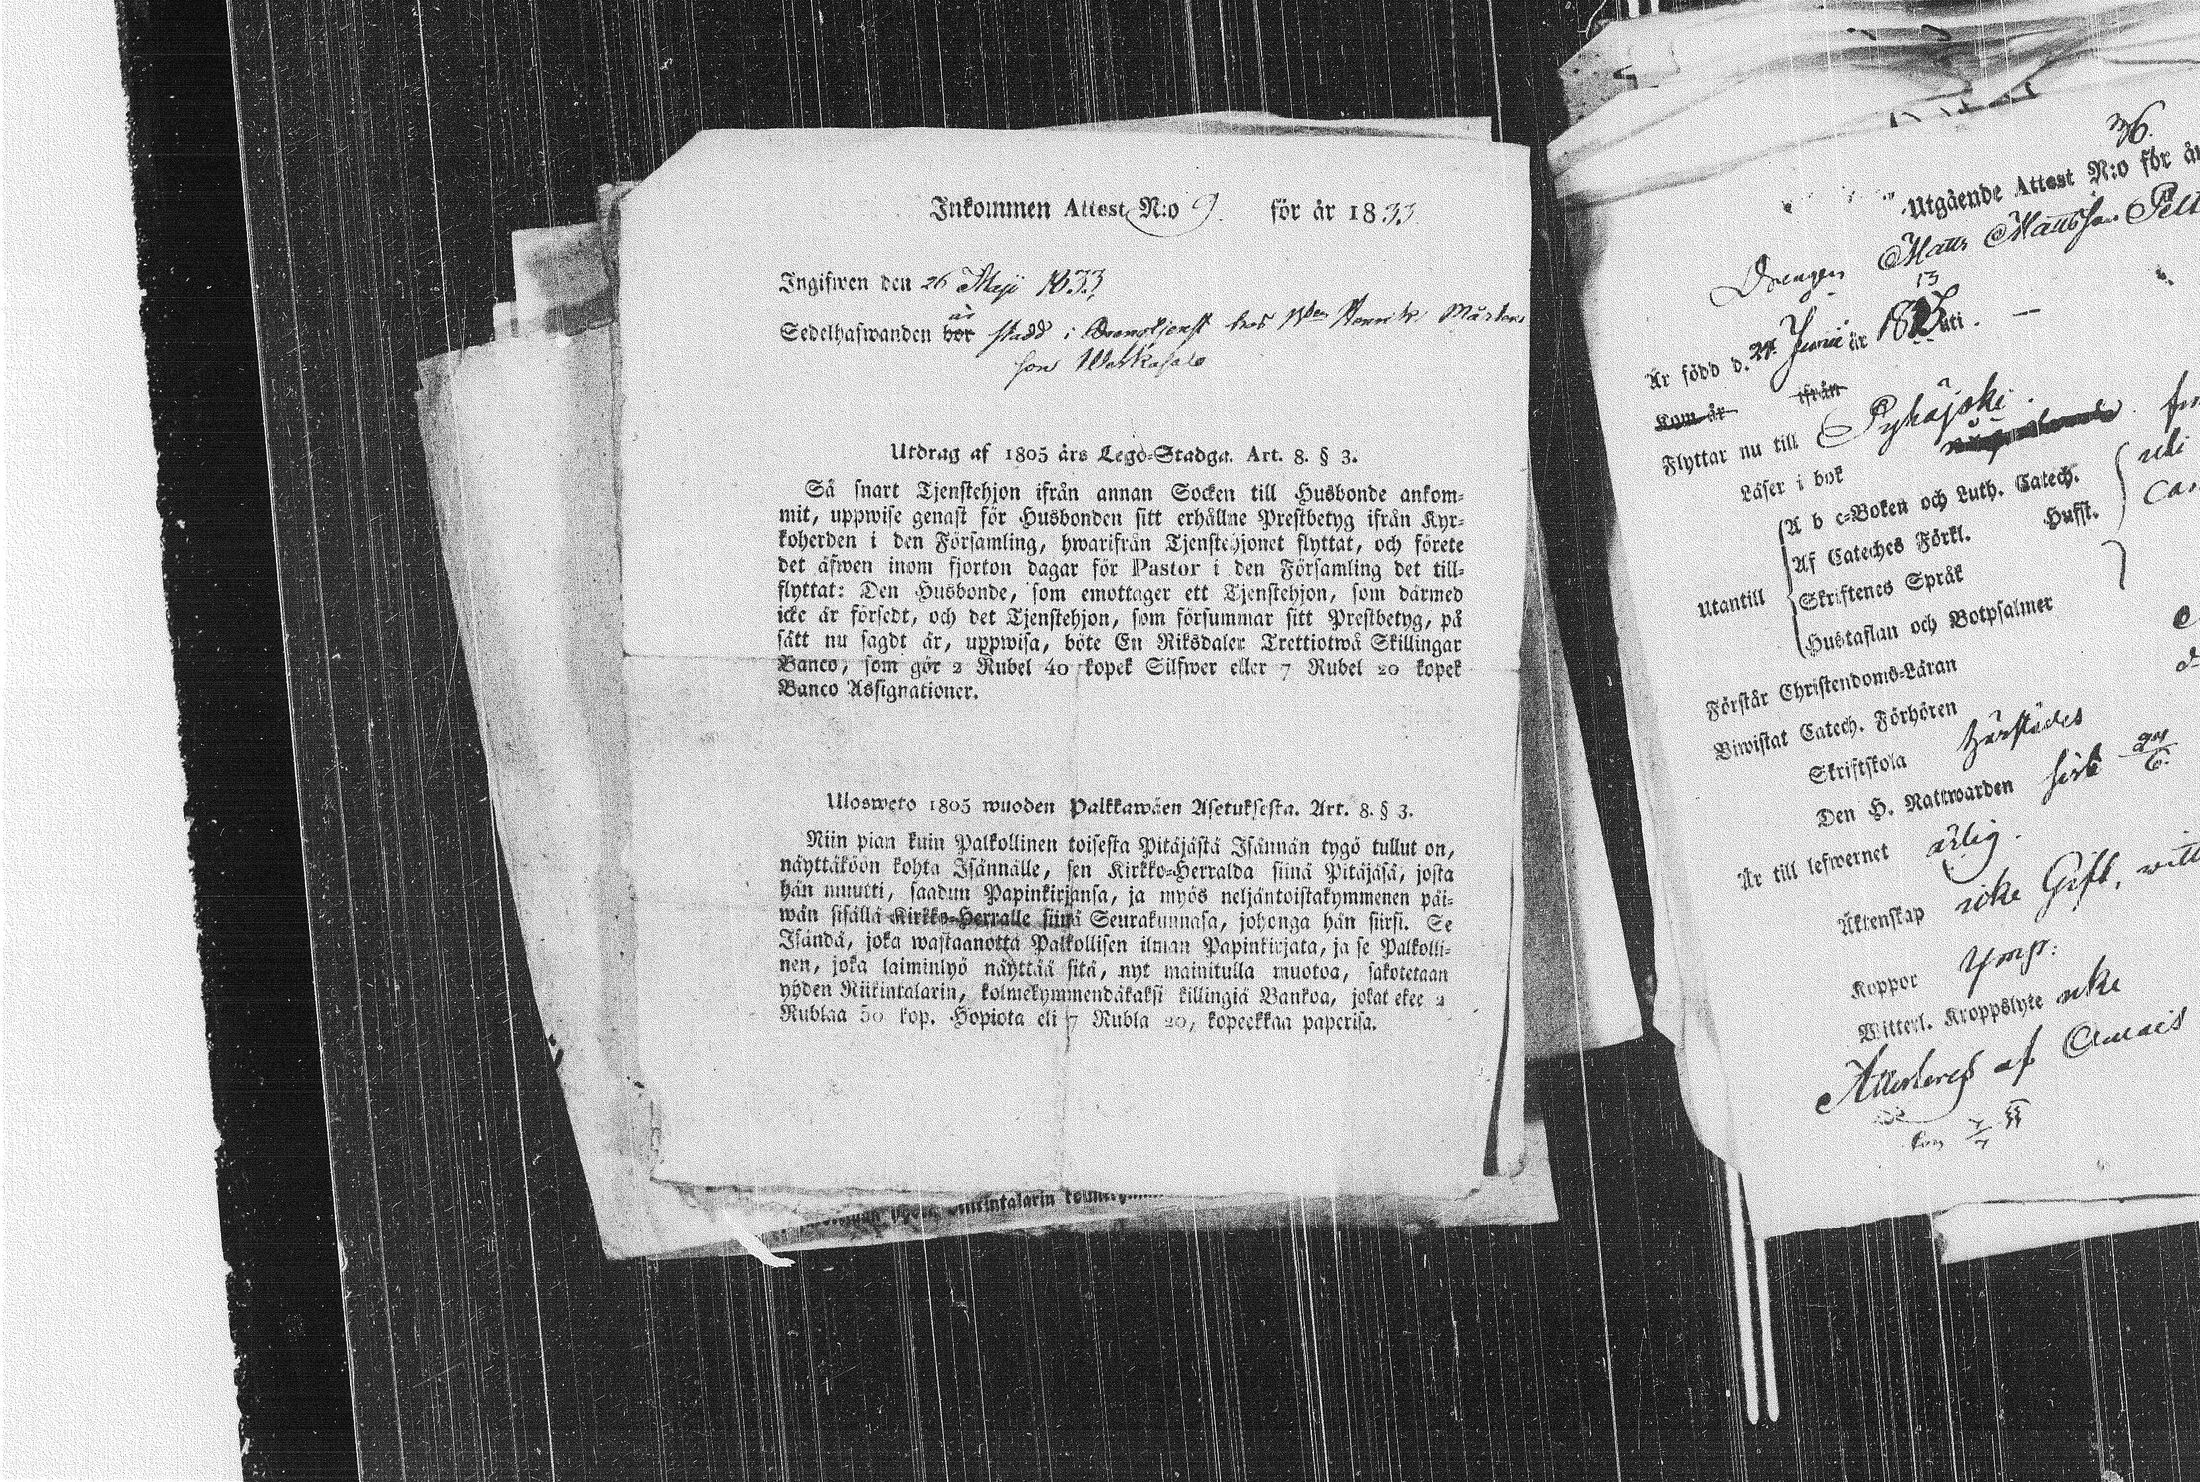 Inkommen Attest N:o 9. för år 1833.
Ingifwen den 26 Maji 1833
är
Sedelhafwanden bor stadd i Drengtjenst hos Henrik Mårtens
son
Utdrag af 1805 års Lego-Stadga. Art. 8. § 3.
Så snart Tjenstehjon ifrån annan Socken till Husbonde ankom-
mit, uppwise genast för Husbonden sitt erhållne Prestbetyg ifrån Kyr-
koherden i den Församling, hwarifrån Tjenstehjonet flyttat, och förete
det äfwen inom fjorton dagar för Pastor i den Församling det till-
flyttat: Den Husbonde, som emottager ett Tjenstehjon, som därmed
icke är försedt, och det Tjenstehjon, som försummar sitt Prestbetyg, på
sätt nu sagdt är, uppwisa, böte En Riksdaler Trettiotwå Skillingar
Banco, som gör 2 Rubel 40 kopek Silfwer eller 7 Rubel 20 kopek
Banco Assignationer.
Ulosweto 1805 wuoden Palkkawäen Asetuksesta. Art. 8. § 3.
Niin pian kuin Palkollinen toisesta Pitäjästä Isännän tygö tullut on,
näyttäköön kohta Isännälle, sen Kirkko-Herralda siinä Pitäjäsä, josta
hän muutti, saadun Papinkirjansa, ja myös neljäntoistakymmenen päi-
wän sisällä Kirkko-Herralle siinä Seurakunnasa, johonga hän siirsi. Se
Isändä, joka wastaanottä Palkollisen ilman Papinkirjata, ja se Palkolli-
nen, joka laiminlyö näyttää sitä, nyt mainitulla muotoa, sakotetaan
yhden Riikintalarin, kolmekymmendäkaksi killingiä Bankoa, jokat ekee 2
Rublaa 50 kop. Hopiota eli 7 Rubla 20, kopeekkaa paperisa.
Riikintalarin
36.
Utgående Attest N:o för år
Drengen Matts Mattsson
13
Är född d. 24 Junii år uti. —
Kom år ifrån
Flyttar nu till Pyhäjoki.
Läser i bok
Utantill
A b c-Boken och Luth. Catech.
Af Cateches Förkl. Husst.
Skriftenes Språk
Hustaflan och Botpsalmer
Förstår Christendoms-Läran
Biwistat Catech. Förhören
Skriftskola härstädes
Den H. Nattwarden sist 24/6.
Är till lefwernet ärlig.
Äktenskap icke Gift,
Koppor Ymp:
Witterl. Kroppslyte icke
Attesteras af